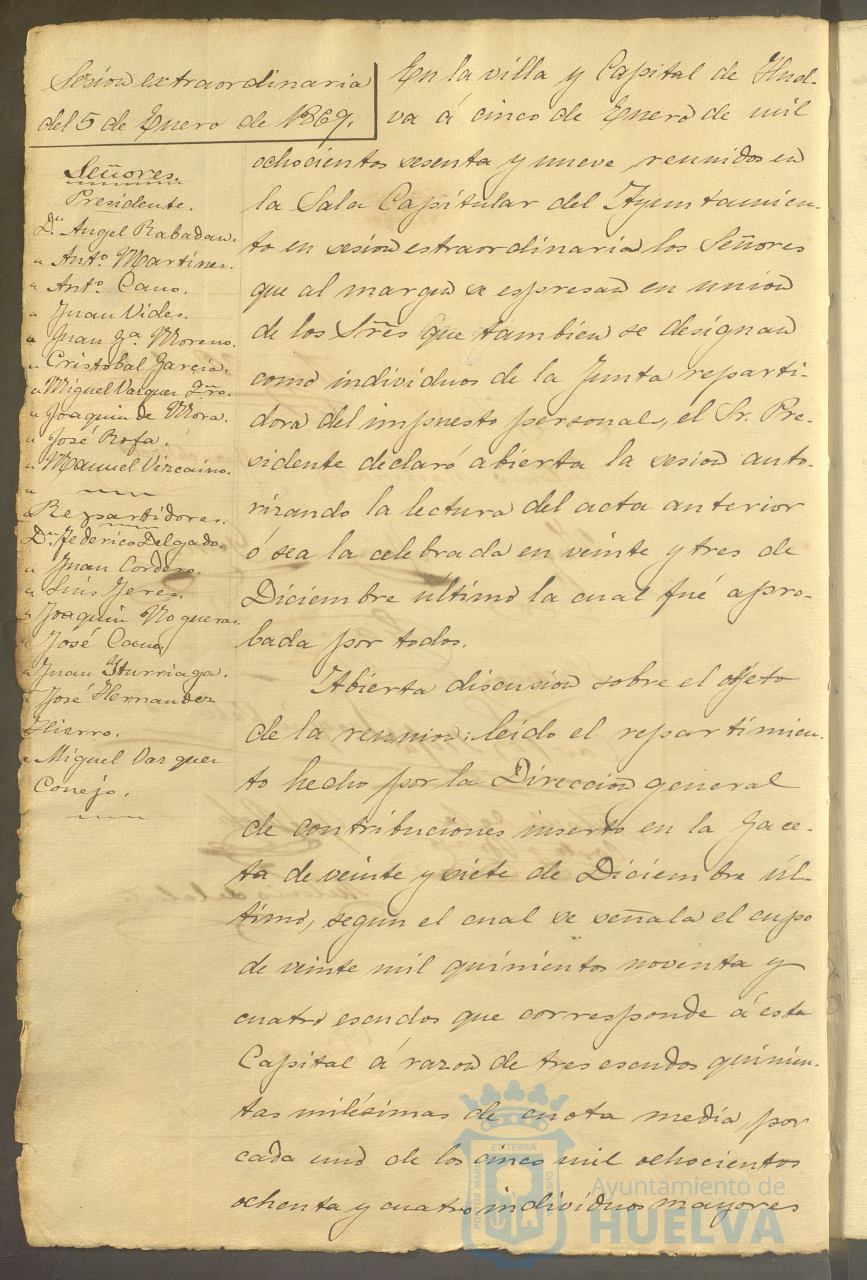 Sesion extraordinaria
del 5 de Enero de 1869.
Señores.
Presidente.
Dn. Angel Rabadan.
" Anto. Martinez.
" Anto. Cano.
" Juan Vides.
" Juan Ga. Moreno.
" Cristobal Garcia.
" Miguel Vazquez
" Joaquin de Mora.
" José Rofa.
" Manuel Vizcaino.
"
Repartidores.
Dn. Federico Delgado.
" Juan Cordero.
" Luis Jerez.
" Joaquin Nogueras.
" José Cano
" Juan Yturriaga.
" José Hernandez
Hierro.
" Miguel Vazquez
Conejo.
En la villa y Capital de Huel-
va á cinco de Enero de mil
ochocientos sesenta y nueve reunidos en
la Sala Capitular del Ayuntamien-
to en sesion extraordinaria los Señores
que al margen se espresan en union
de los Sres que tambien se designan
como individuos de la Junta reparti-
dora del impuesto personal, el Sr. Pre-
sidente declaró abierta la sesion auto-
rizando la lectura del acta anterior
ó sea la celebrada en veinte y tres de
Diciembre último la cual fué apro-
bada por todos.
Abierta discusion sobre el objeto
de la reunion: leido el repartimien-
to hecho por la Direccion general
de contribuciones inserto en la Gace-
ta de veinte y siete de Diciembre úl-
timo, segun el cual se señala el cupo
de veinte mil quinientos noventa y
cuatro escudos que corresponde á esta
Capital á razon de tres escudos quinien-
tas milésimas de cuota media por
cada uno de los cinco mil ochocientos
ochenta y cuatro individuos mayores
Ayuntamiento de
HUELVA